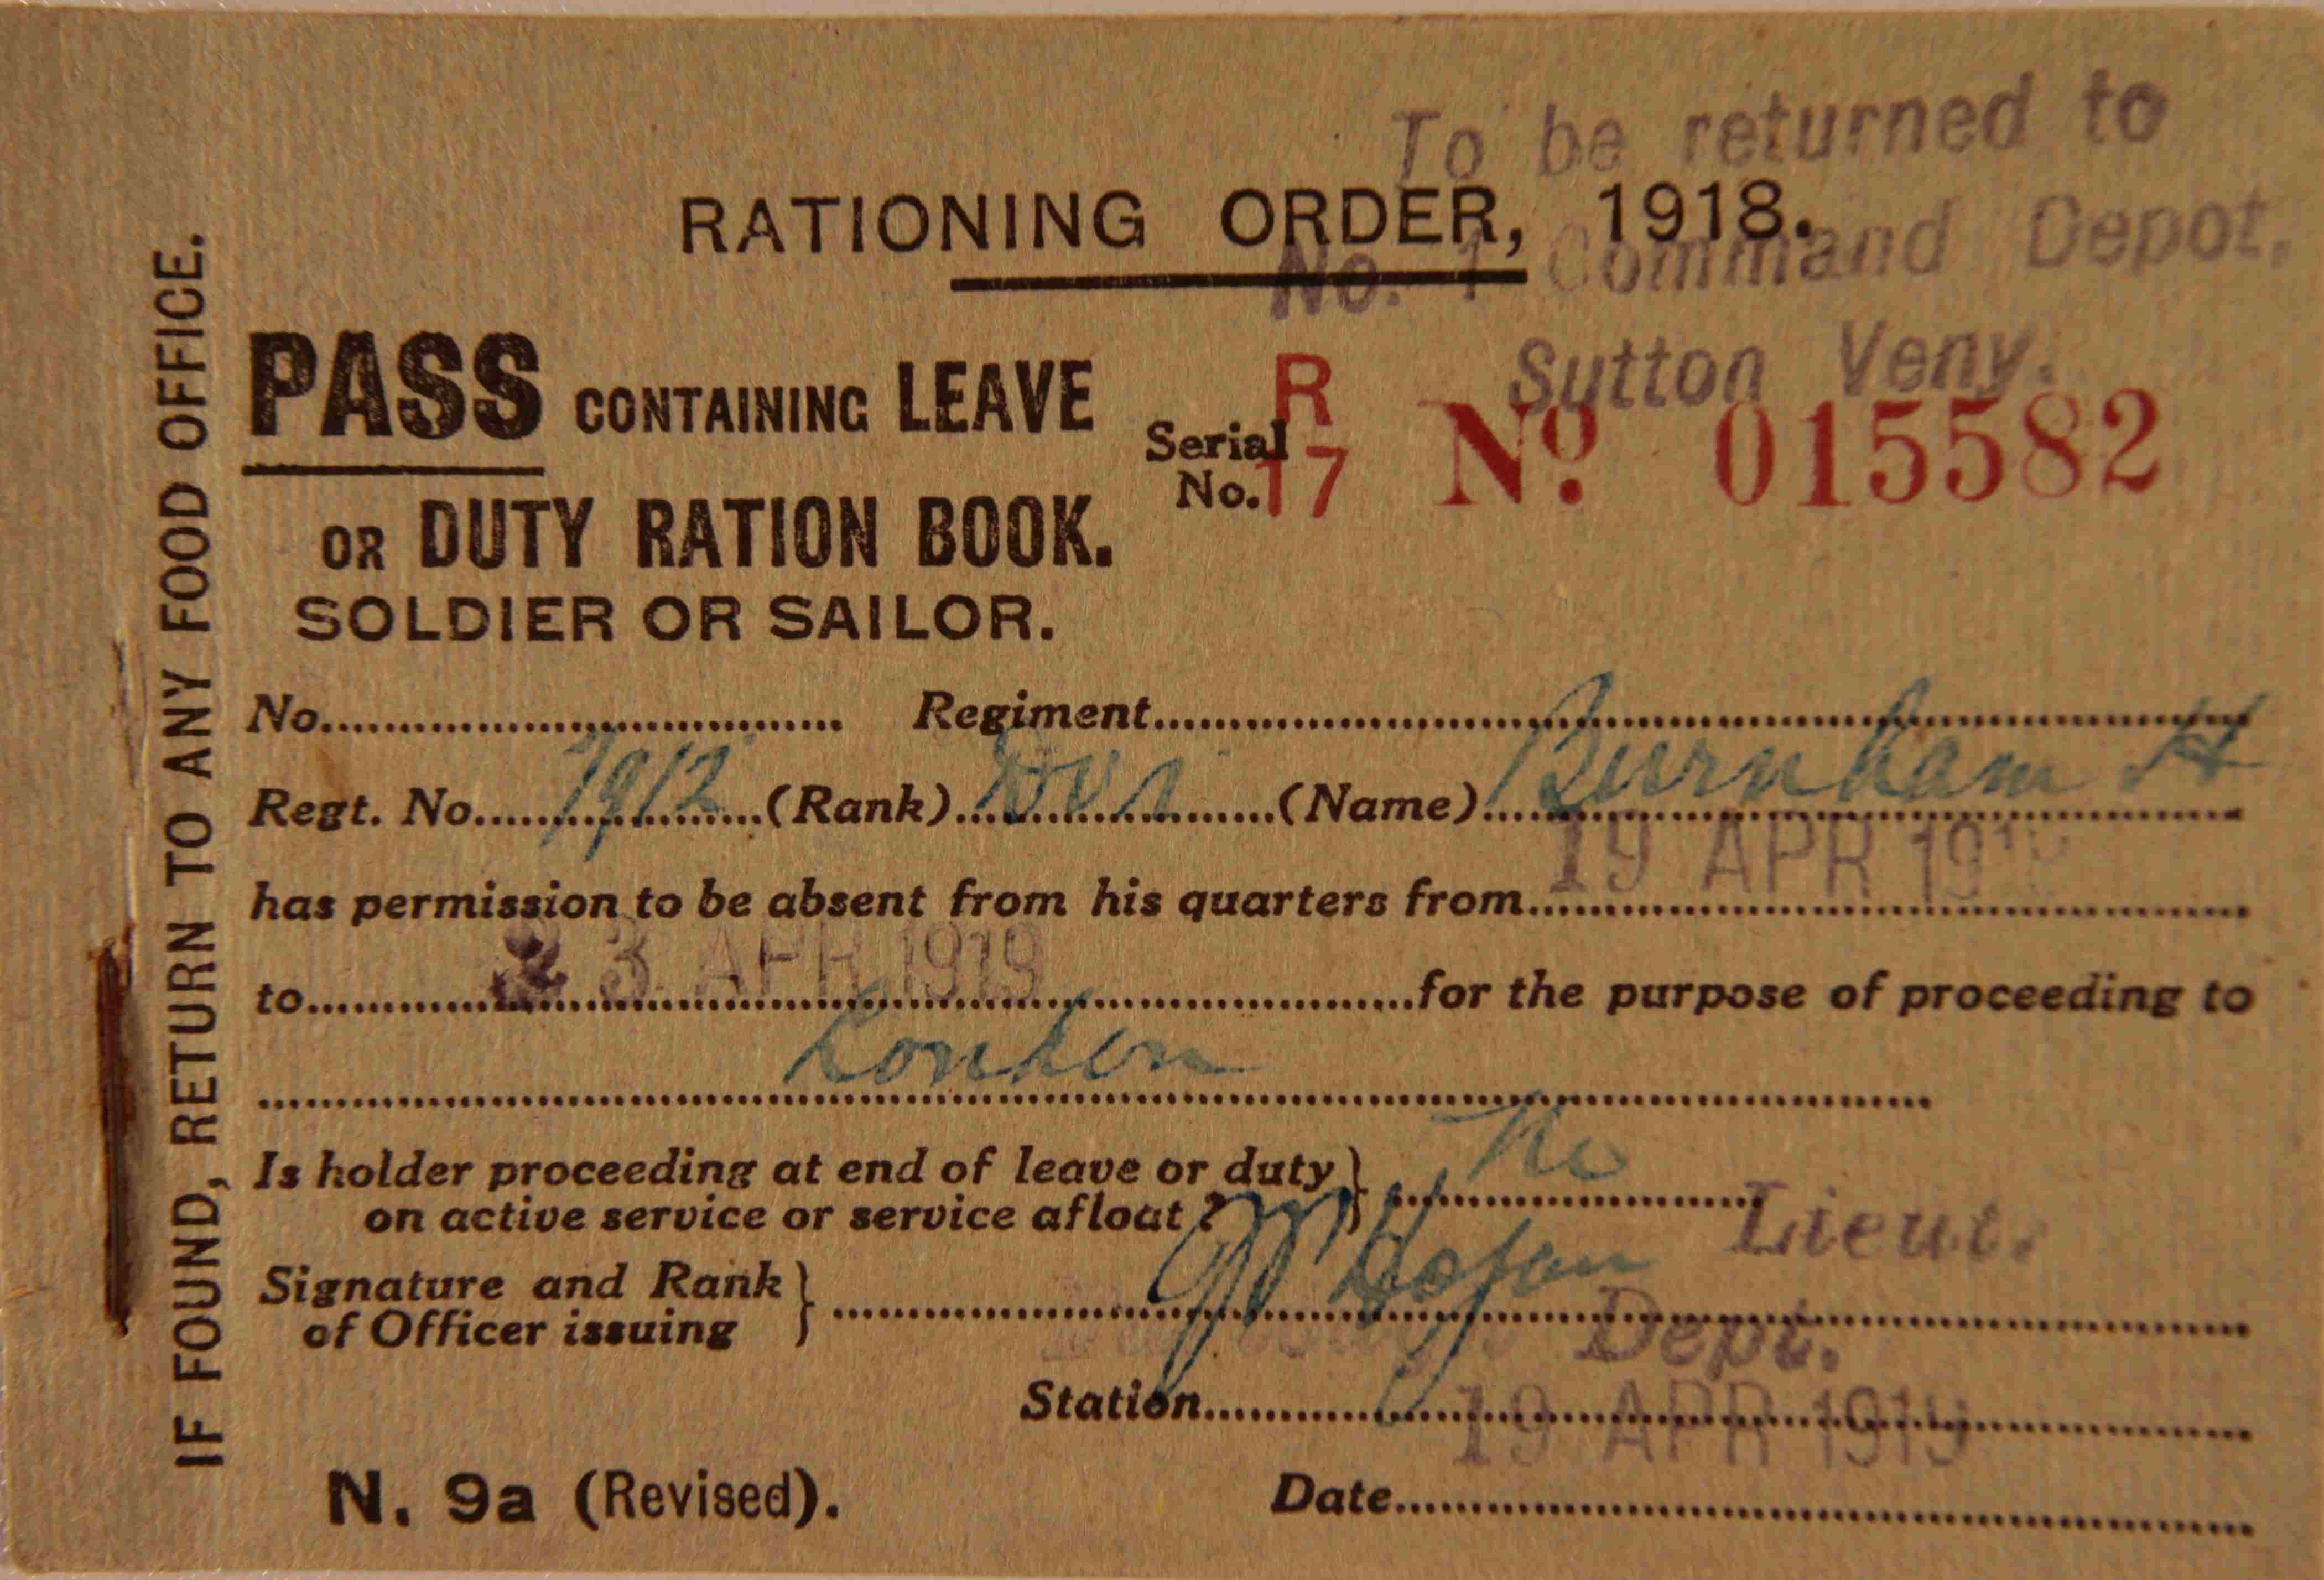 To be returned to
RATIONING ORDER, 1918.
No. 1 Command Depot.
Sutton Veny.
PASS CONTAINING LEAVE
OR DUTY RATION BOOK.
Serial No. R 17 Nº 015582
SOLDIER OR SAILOR.
No. Regiment
Regt. No. 7912 (Rank) Dvr (Name) Burnham H
has permission to be absent from his quarters from 19 APR 191
to 23 APR 1919 for the purpose of proceeding to
London
Is holder proceeding at end of leave or duty
on active service or service afloat? No
Lieut.
Signature and Rank
of Officer issuing
Dept.
Station
19 APR 1919
N. 9a (Revised). Date
IF FOUND, RETURN TO ANY FOOD OFFICE.